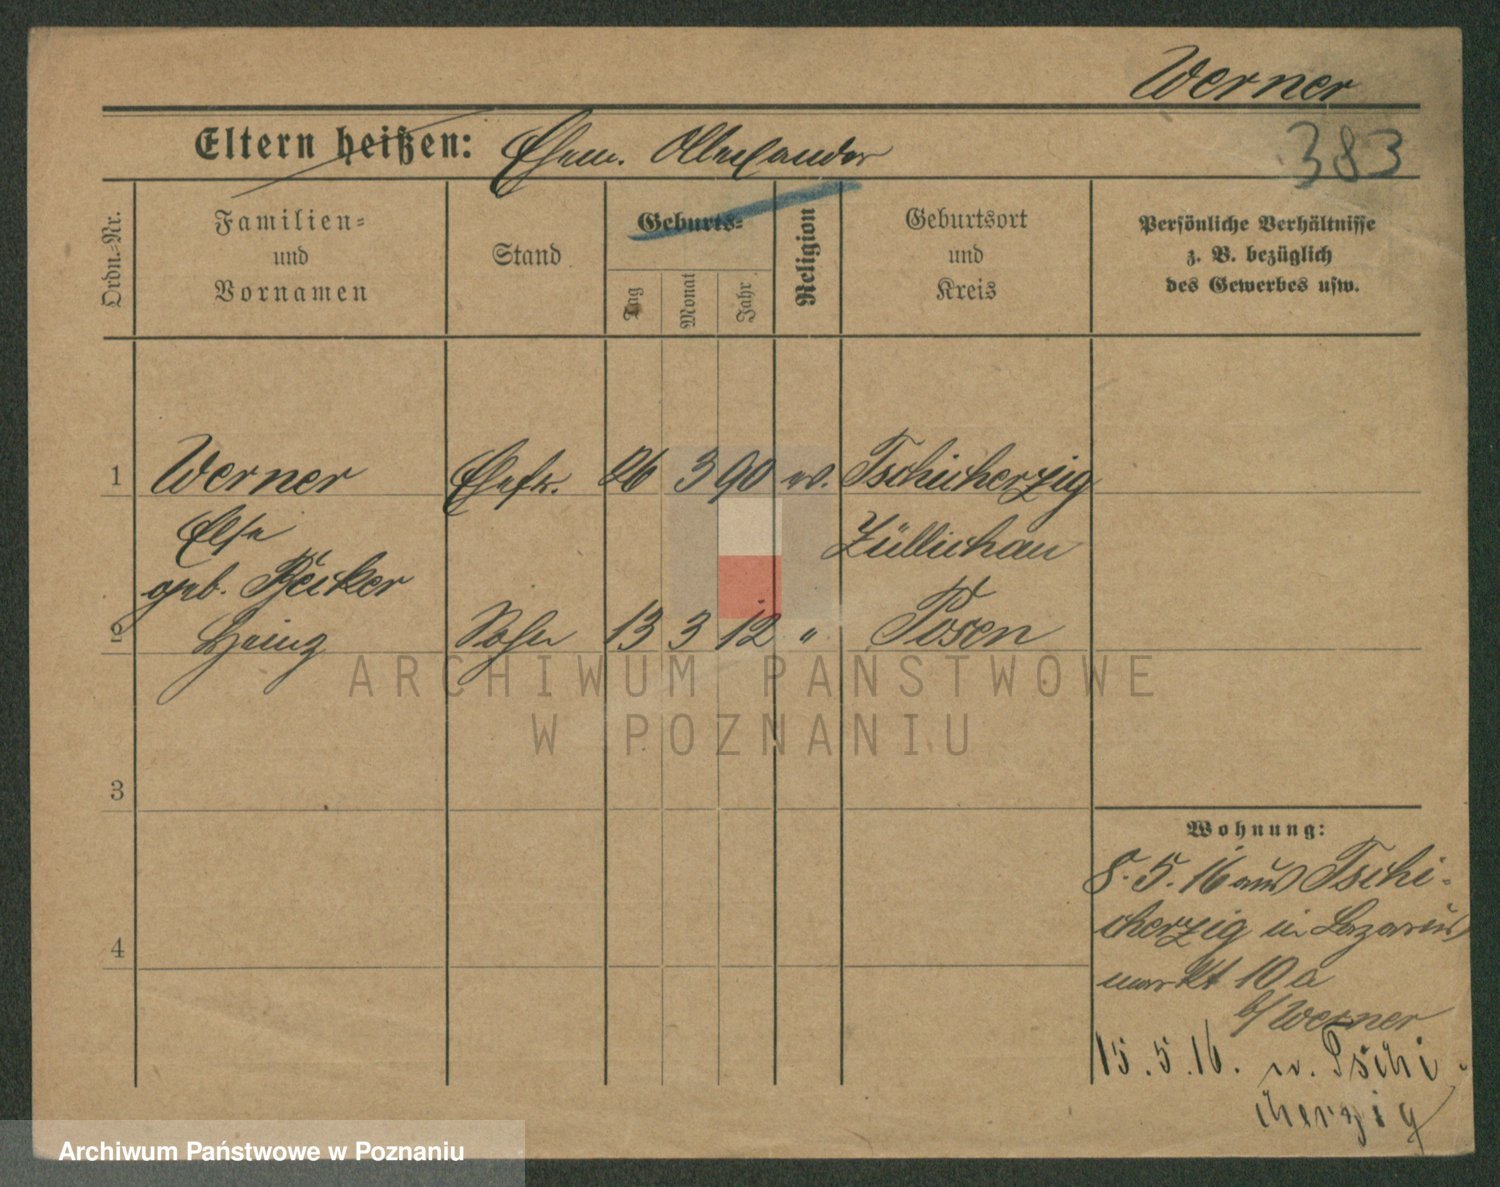 Werner
Eltern heißen: Ehem. Allexander
383
Ordn.-Nr.
Familien-
und
Vornamen
Stand
Geburts-
Tag
Monat
Jahr
Religion
Geburtsort
und
Kreis
Persönliche Verhältnisse
z. B. bezüglich
des Gewerbes usw.
1 Werner Ehefr. 26 3 90 ev. Tschicherzig
Else Züllichau
geb. Becker
2 Heinz Sohn 13 3 12 " Posen
3
4
Wohnung:
8. 5. 16 aus Tschi-
cherzig in Lazarus
markt 10 a
b/Werner
15. 5. 16. n. Tschi-
cherzig
ARCHIWUM PAŃSTWOWE
W POZNANIU
Archiwum Państwowe w Poznaniu